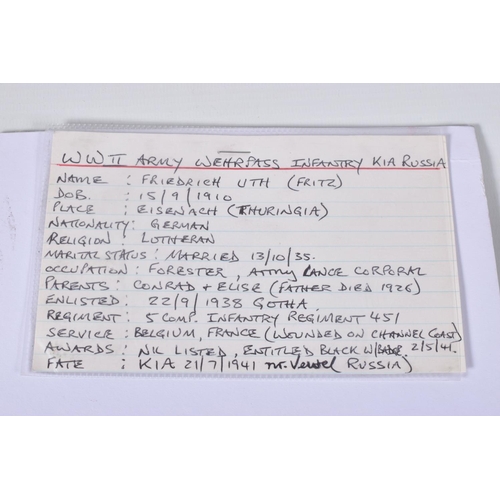 WWII ARMY WEHRPASS INFANTRY KIA RUSSIA
NAME : FRIEDRICH UTH (FRITZ)
DOB. : 15/9/1910
PLACE : EISENACH (THURINGIA)
NATIONALITY: GERMAN
RELIGION : LUTHERAN
MARITAL STATUS : MARRIED 13/10/35.
OCCUPATION : FORESTER, ARMY LANCE CORPORAL
PARENTS : CONRAD + ELISE (FATHER DIED 1926)
ENLISTED : 22/9/1938 GOTHA.
REGIMENT : 5 COMP. INFANTRY REGIMENT 451
SERVICE : BELGIUM, FRANCE (WOUNDED ON CHANNEL COAST)
AWARDS : NIL LISTED, ENTITLED BLACK W/BADGE 2/5/41.
FATE : KIA 21/7/1941 nr. RUSSIA)